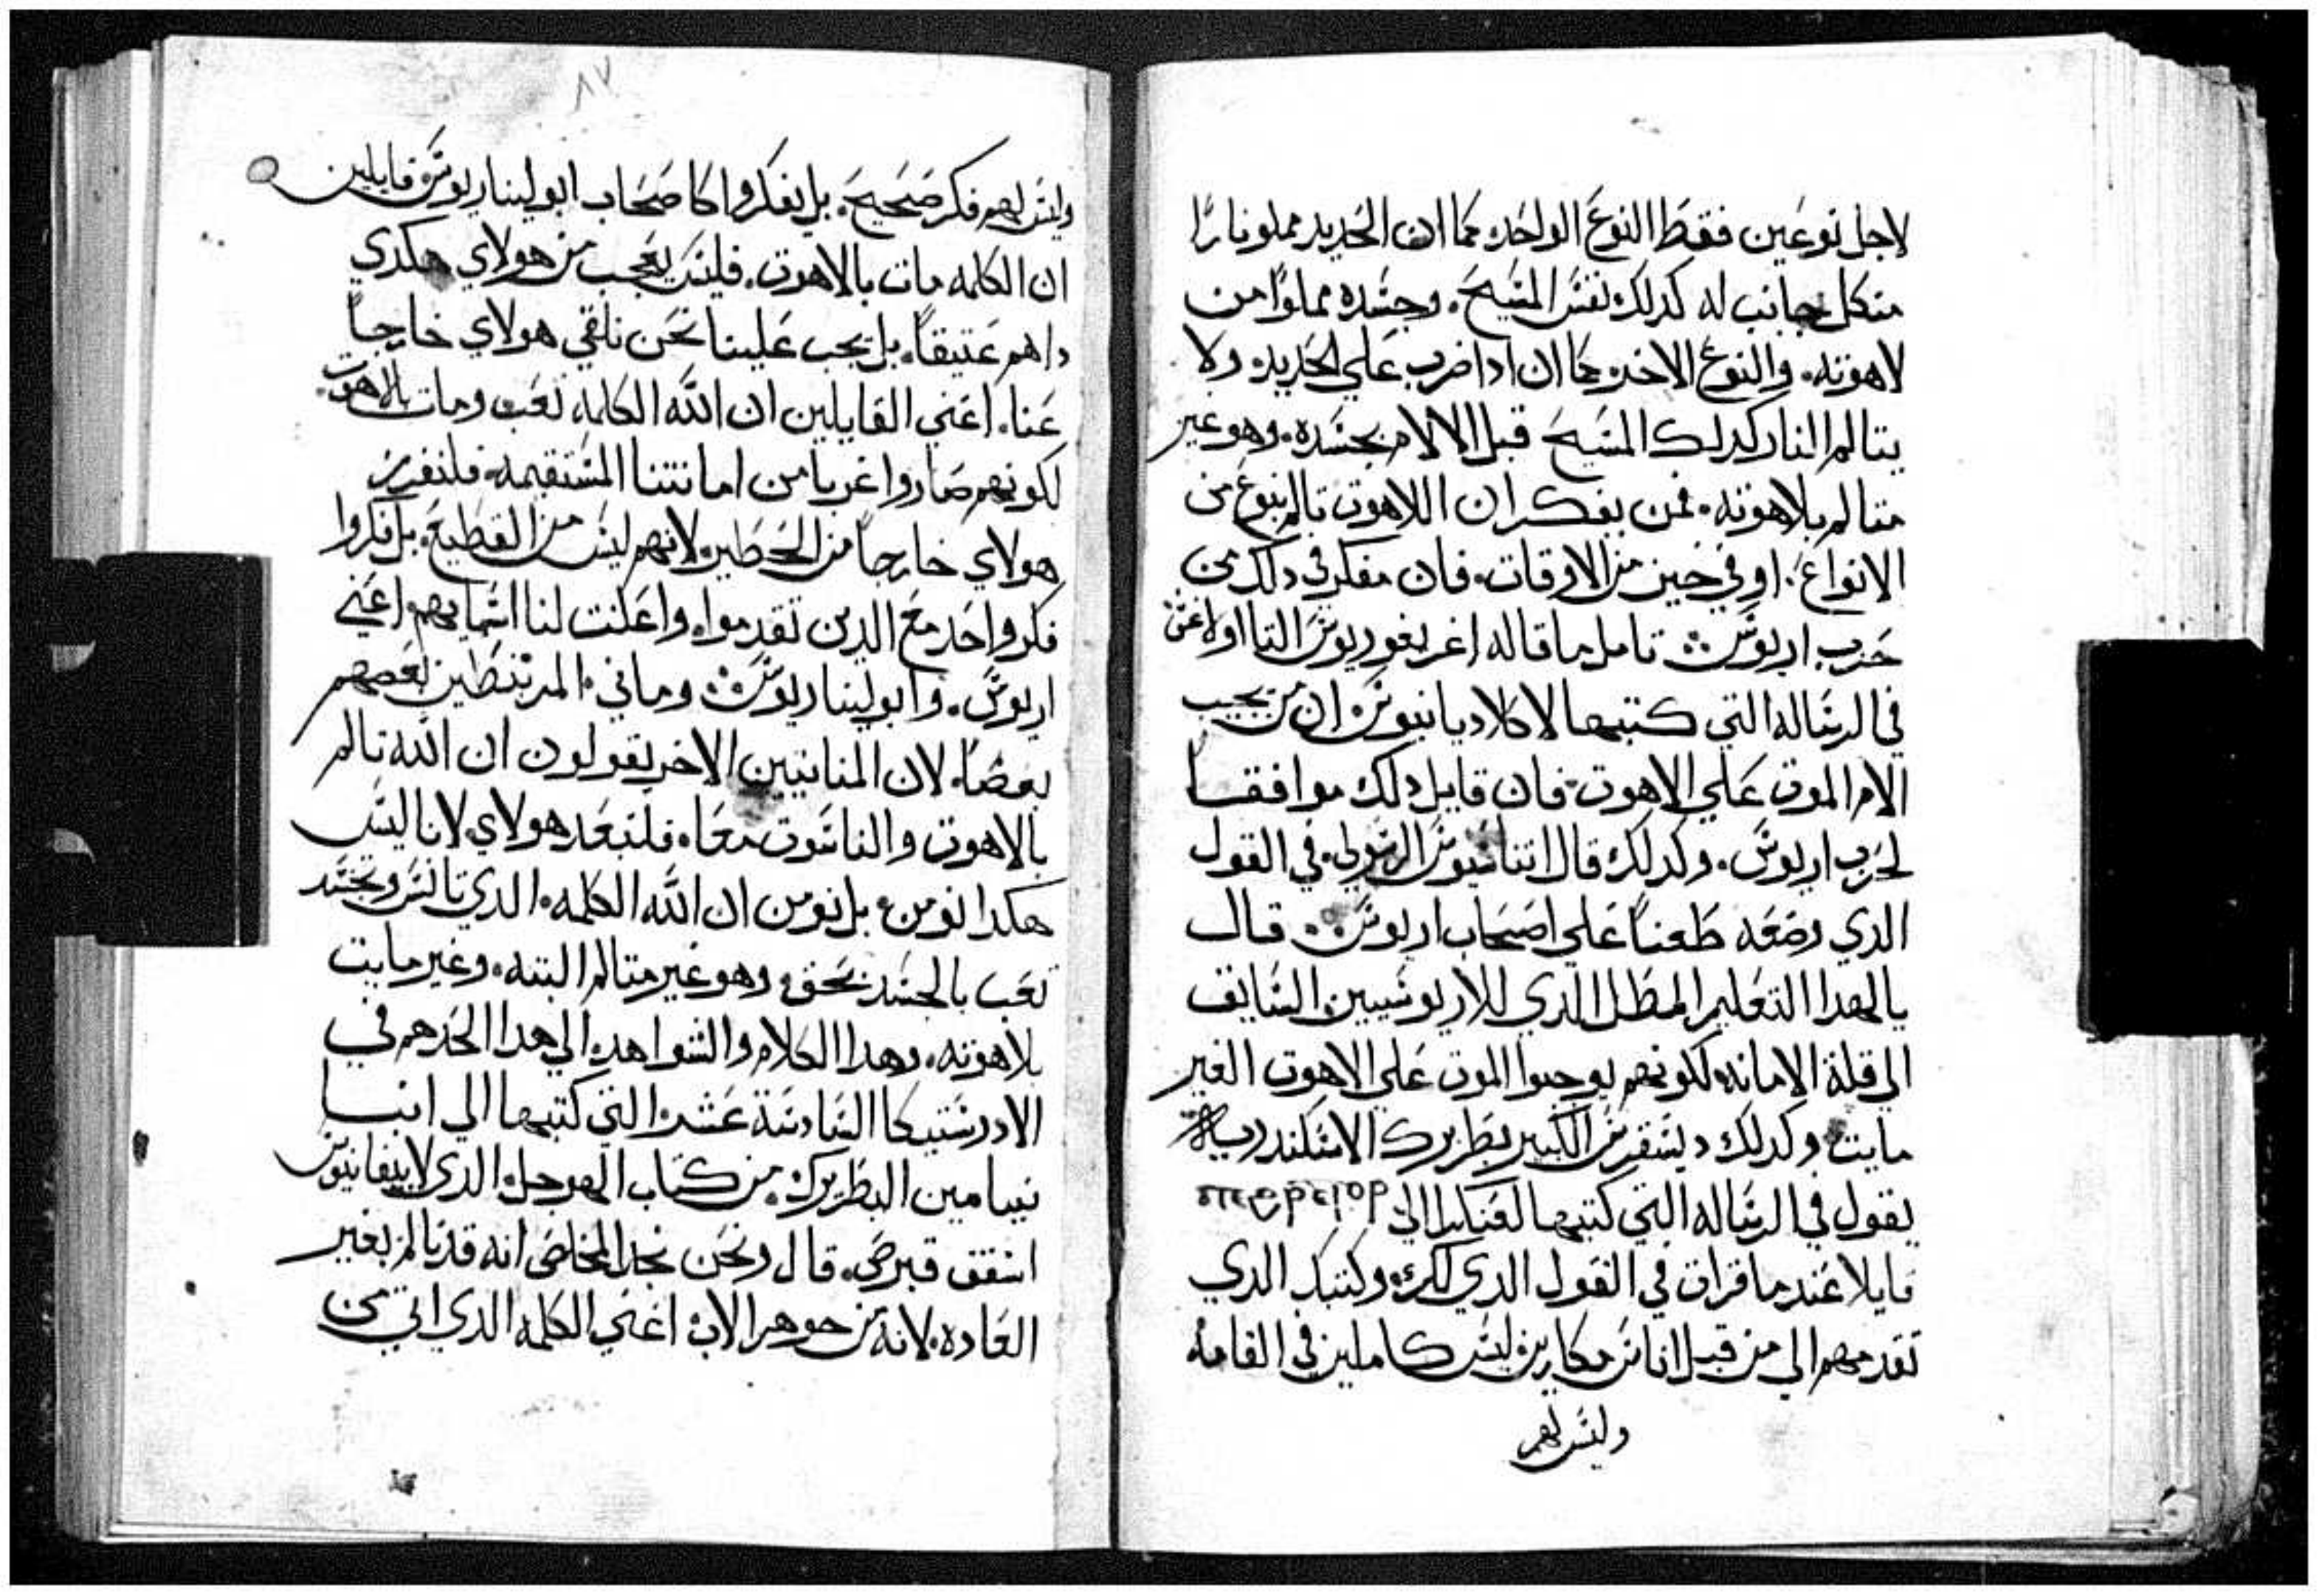 لاجل نوعين فقط النوع الواحد كما ان الحديد مملو نارًا
من كل جانب له كدلك نفس المسيح. وجسده مملوًا من
لاهوته. والنوع الاخر كما ان ادا ضرب علي الحديد ولا
يتالم النار كدلك المسيح قبل الالام بجسده. وهو غير
متالم بلاهوته. فمن يفكر ان اللاهوت تالم بنوع من
الانواع. او في حين من الاوقات. فان مفكر في دلك من
حزب اريوس تامل ما قاله اغريغوريوس التااولاغس
في الرساله التي كتبها لاكلاديانيوس ان من يجيب
الام الموت علي الاهوت فان قايل دلك موافقًا
لحزب اريوس. وكدلك قال اتناسيوس الرسولي في القول
الدي وضعه طعنًا علي اصحاب اريوس قال
يالهدا التعليم المطل الدي للاريوسيين السايق
الي قلة الامانه لكونهم يوجبوا الموت علي الاهوت الغير
مايت وكدلك ديسقرس الكبير بطريرك الاسكندريه
يقول في الرساله التي كتبها الي
قايلا عند ما قرات في القول الدي لكم. وكتبك الدي
تقدمهم الي من قبل اناس مكارين ليس كاملين في القامه
وليس لهم
٨٧
وليس لهم فكر صحيح. بل يفكروا كاصحاب ابوليناريوس قايلين
ان الكلمه مات بالاهوت. فليس يعجب من هولاي هكدي
داهم عتيقًا. بل يجب علينا نحن نلقي هولاي خارجًا
عنا. اعني القايلين ان الله الكلمه تعب ومات بالاهوت.
لكونهم صاروا غربا من امانتنا المستقيمه فلنفرز
هولاي خارجًا من الحظير لانهم ليس من القطيع. بل فكروا
فكر واحد مع الدين تقدموا. واعلنت لنا اسمايهم اعني
اريوس. وابوليناريوس وماني. المرتبطين بعضهم
بعضًا. لان المنانيين الاخر يقولون ان الله تالم
بالاهوت والناسوت معًا. فلنبعد هولاي لانا ليس
هكدا نومن بل نومن ان الله الكلمه. الدي تانس وتجسد
تعب بالجسد بحق. وهو غير متالم البته. وغير مايت
بلاهوته. وهدا الكلام والشواهد الي هدا الحد هم في
الادرستيكا السادسة عشر التي كتبها الي انبا
نيبامين البطريرك. من كتاب الهوجل الدي لابيفانيوس
اسقف قبرص. قال ونحن نجد المخلص انه قد تالم بغير
العاده. لانه من جوهر الاب اعني الكلمه الدي اتي من